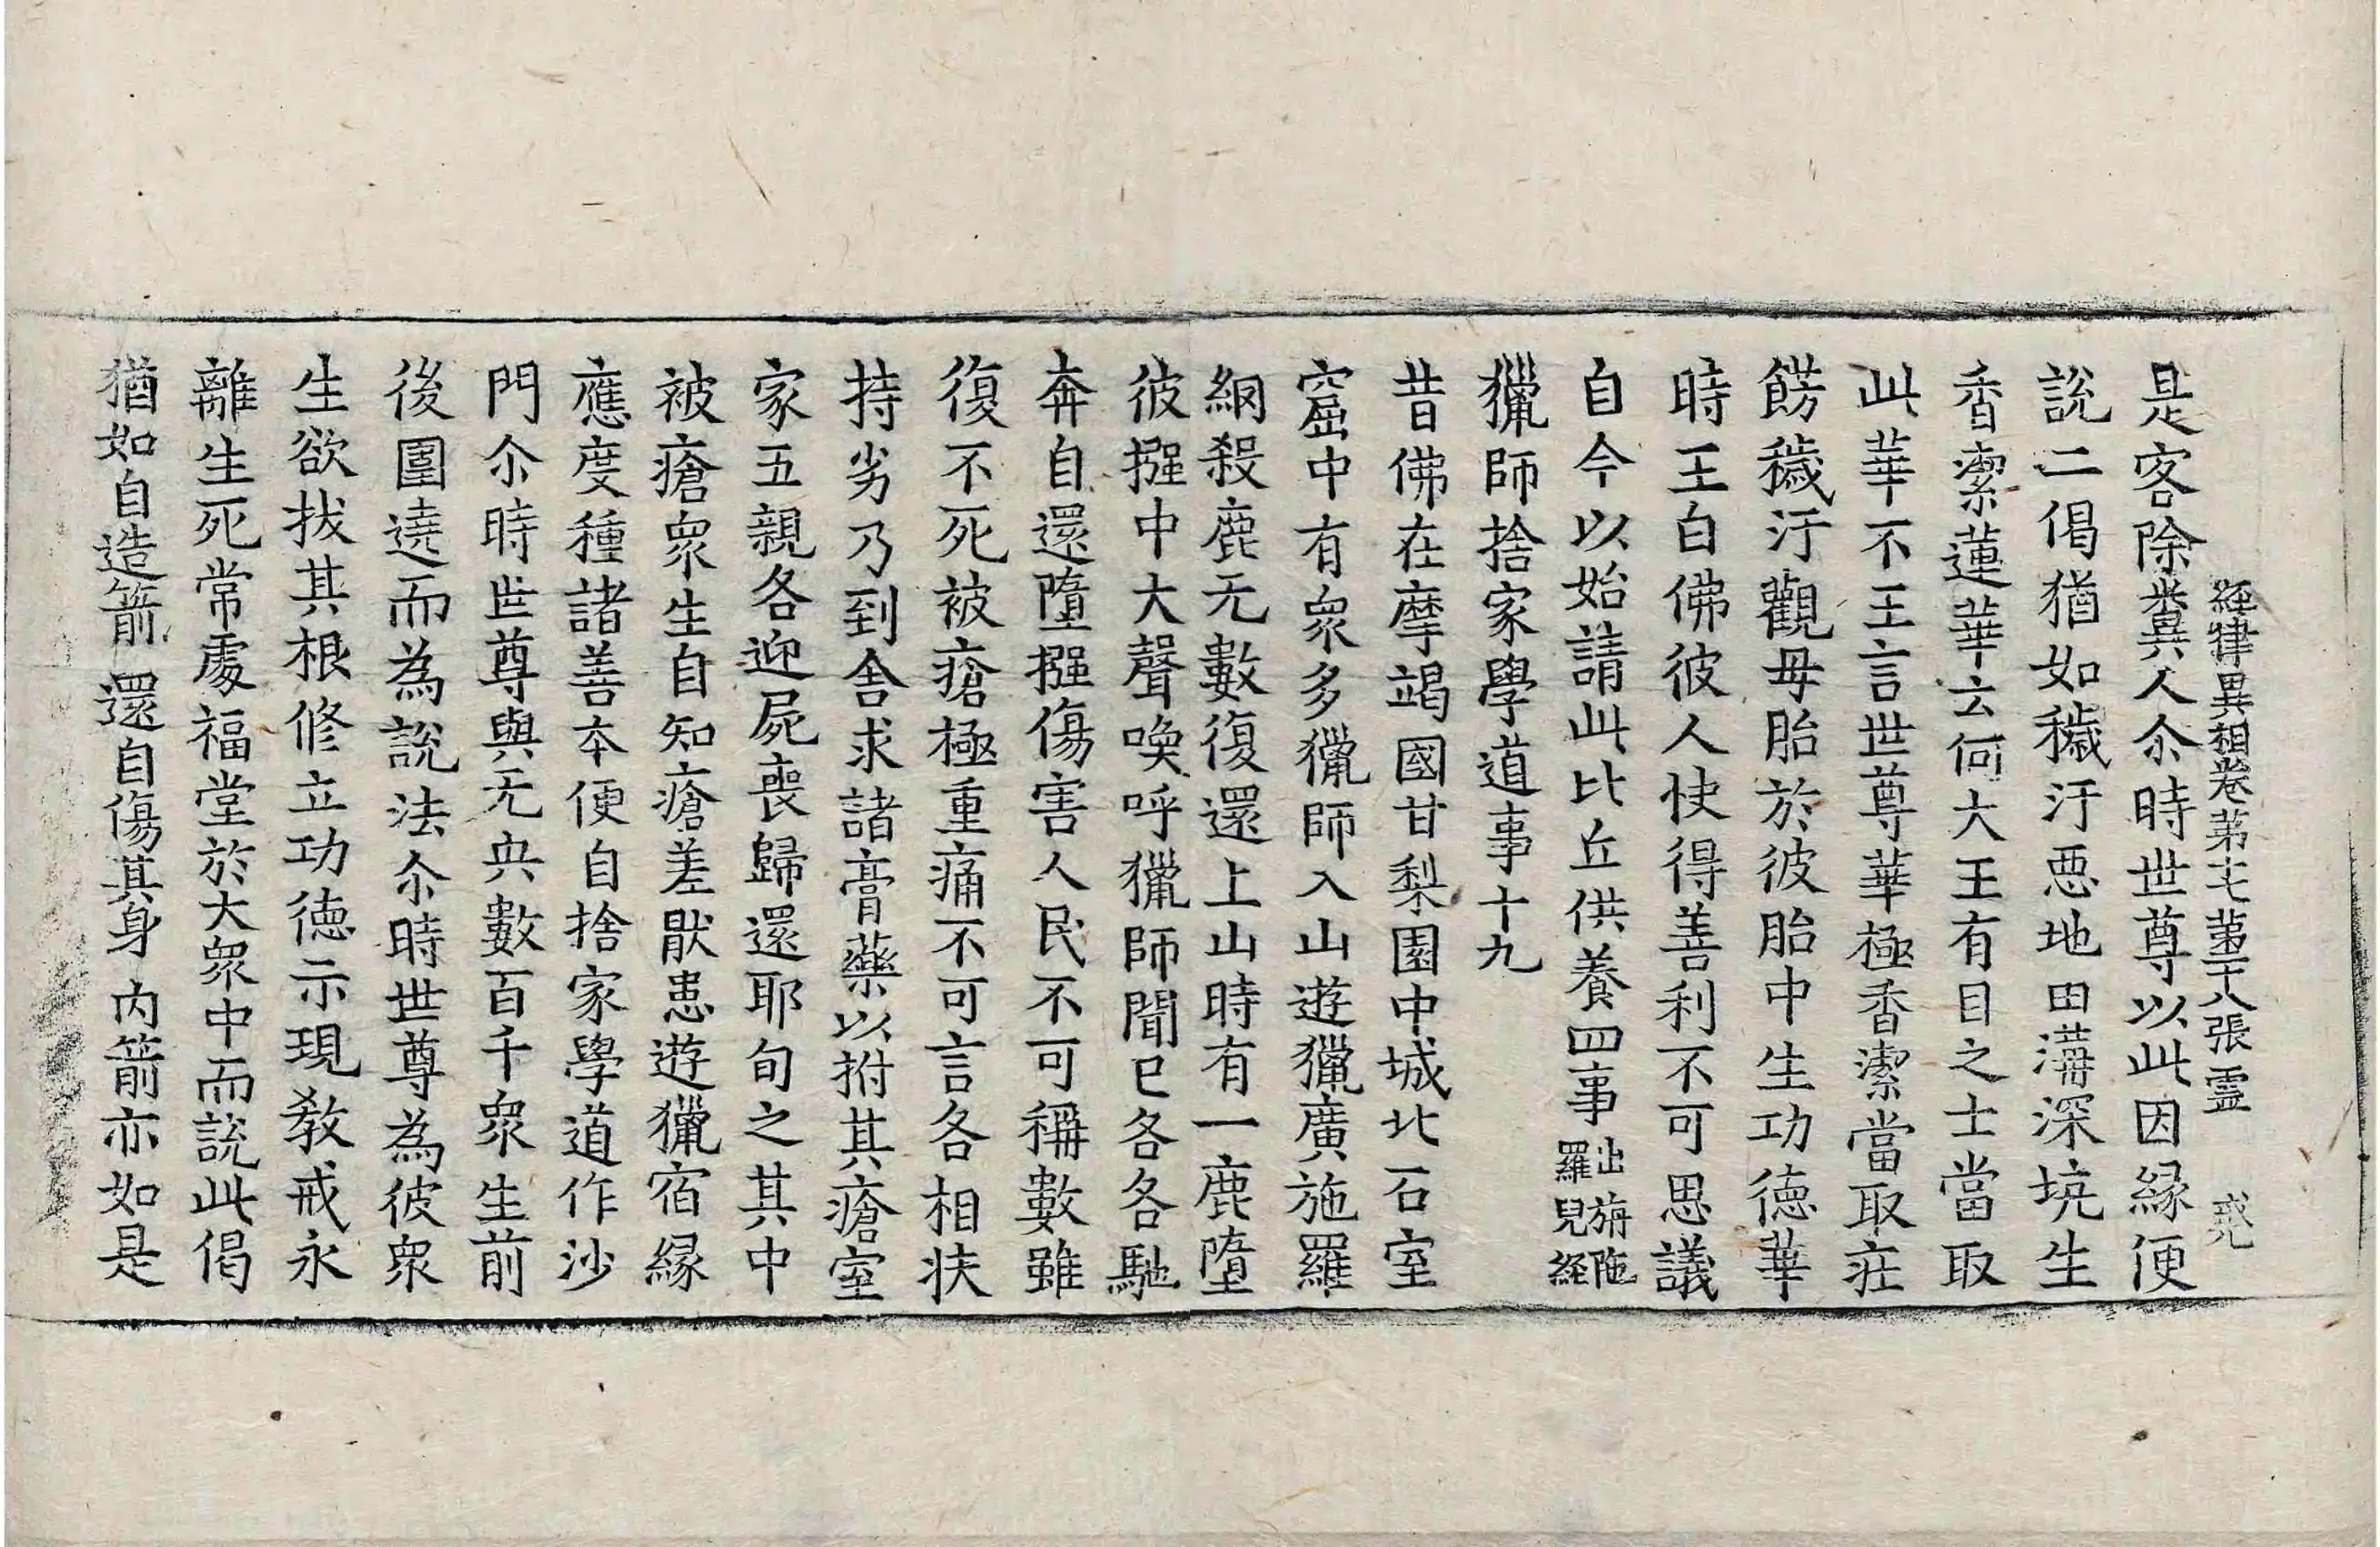 經律異相卷第十七 第十八張 霊 戒光
是客除糞人尒時世尊以此因緣便
說二偈猶如穢汙惡地田溝深坑生
香潔蓮華云何大王有目之士當取
此華不王言世尊華極香潔當取莊
餝穢汙觀母胎於彼胎中生功德華
時王白佛彼人快得善利不可思議
自今以始請此比丘供養四事出旃陁羅兒經
獵師捨家學道事十九
昔佛在摩竭國甘梨園中城北石室
窟中有衆多獵師入山遊獵廣施羅
網殺鹿无數復還上山時有一鹿墮
彼摾中大聲喚呼獵師聞已各各馳
奔自還墮摾傷害人民不可稱數雖
復不死被瘡極重痛不可言各相扶
持劣乃到舍求諸膏藥以拊其瘡室
家五親各迎屍喪歸還耶旬之其中
被瘡衆生自知瘡差猒患遊獵宿緣
應度種諸善本便自捨家學道作沙
門尒時世尊與无央數百千衆生前
後圍遶而為說法尒時世尊為彼衆
生欲拔其根修立功德示現教戒永
離生死常處福堂於大衆中而說此偈
猶如自造箭 還自傷其身 內箭亦如是